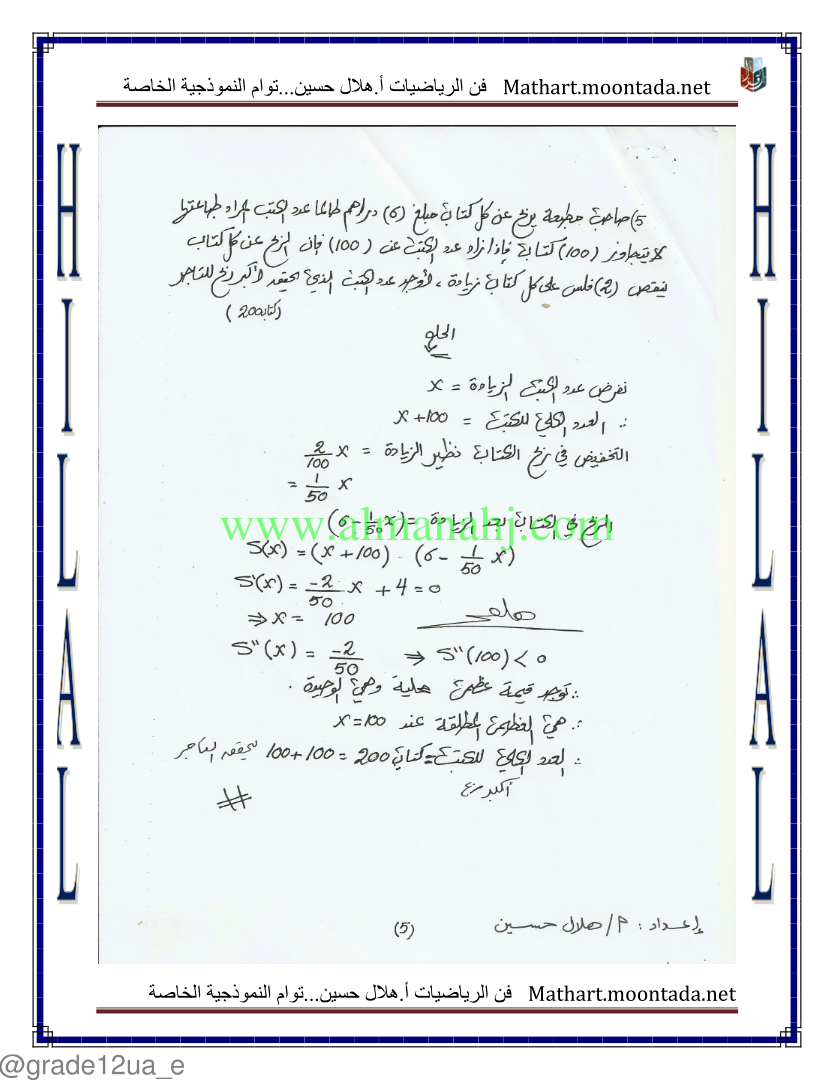 فن الرياضيات أ.هلال حسين...توام النموذجية الخاصة Mathart.moontada.net
HILLAL
HILLAL
5) صاحب مطبعة يربح عن كل كتاب مبلغ (6) دراهم طالما عدد الكتب المراد طباعتها
لا يتجاوز (100) كتاب فإذا زاد عدد الكتب عن (100) فإن الربح عن كل كتاب
ينقص (2) فلس على كل كتاب زيادة، أوجد عدد الكتب الذي يحقق أكبر ربح للتاجر
(200 كتاب)
الحل
نفرض عدد الكتب الزيادة = x
∴ العدد الكلي للكتب = x+100
التخفيض في ربح الكتاب نظير الزيادة = 2/100 x
= 1/50 x
الربح في الكتاب بعد الزيادة = (6 - 1/50 x)
www.almanahj.com
S(x) = (x+100) · (6 - 1/50 x)
S'(x) = -2/50 x + 4 = 0
⇒ x = 100
S''(x) = -2/50 ⇒ S''(100) < 0
∴ توجد قيمة عظمى محلية وهي الوحيدة.
∴ هي العظمى المطلقة عند x=100
∴ العدد الكلي للكتب = كتاب 200 = 100+100 ليحقق التاجر
أكبر ربح
#
إعداد : م/ هلال حسين
(5)
فن الرياضيات أ.هلال حسين...توام النموذجية الخاصة Mathart.moontada.net
@grade12ua_e